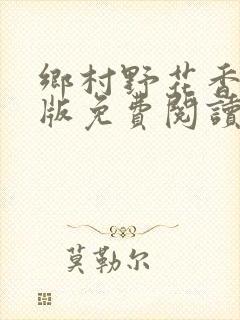 鄉村野花香
版免費閱讀
莫勒尔